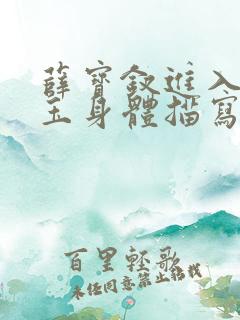 薛寶釵進入
玉身體描寫
百里輕歌
未经同意禁止转载